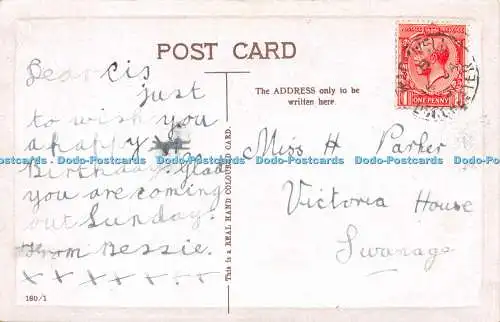 POST CARD
The ADDRESS only to be
written here.
Dear Cis
just
to wish you
a happy
Birthday. Glad
you are coming
out Sunday.
From Bessie.
x x x x x x x
180/1
This is a REAL HAND COLOURED CARD.
POSTAGE REVENUE
ONE PENNY
Miss H Parker
Victoria House
Swanage
Dodo-Postcards Dodo-Postcards Dodo-Postcards Dodo-Postcards Dodo-Postcards Dodo-Postcards